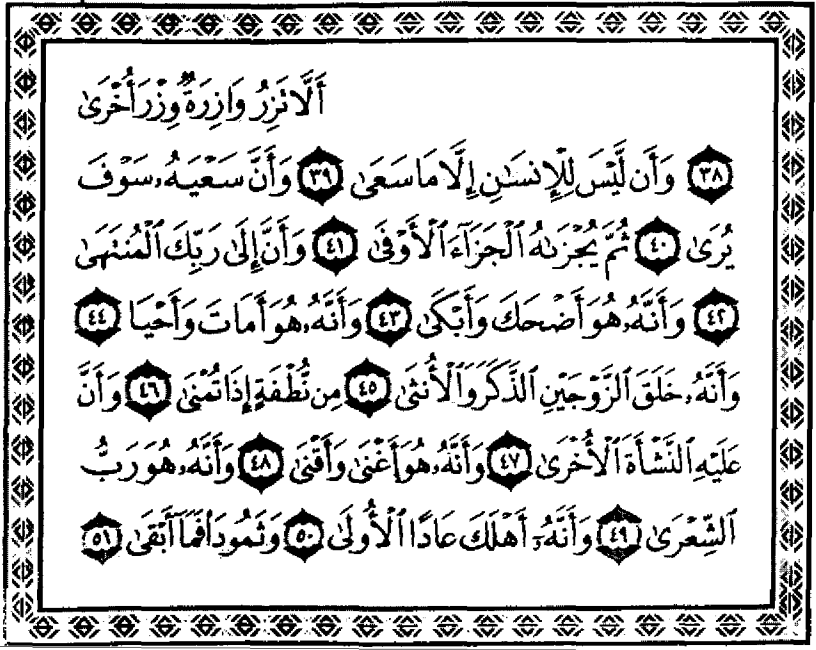 أَلَّا تَزِرُ وَازِرَةٌ وِزْرَ أُخْرَىٰ
٣٨ وَأَن لَّيْسَ لِلْإِنسَٰنِ إِلَّا مَا سَعَىٰ ٣٩ وَأَنَّ سَعْيَهُۥ سَوْفَ
يُرَىٰ ٤٠ ثُمَّ يُجْزَىٰهُ ٱلْجَزَآءَ ٱلْأَوْفَىٰ ٤١ وَأَنَّ إِلَىٰ رَبِّكَ ٱلْمُنتَهَىٰ
٤٢ وَأَنَّهُۥ هُوَ أَضْحَكَ وَأَبْكَىٰ ٤٣ وَأَنَّهُۥ هُوَ أَمَاتَ وَأَحْيَا ٤٤
وَأَنَّهُۥ خَلَقَ ٱلزَّوْجَيْنِ ٱلذَّكَرَ وَٱلْأُنثَىٰ ٤٥ مِن نُّطْفَةٍ إِذَا تُمْنَىٰ ٤٦ وَأَنَّ
عَلَيْهِ ٱلنَّشْأَةَ ٱلْأُخْرَىٰ ٤٧ وَأَنَّهُۥ هُوَ أَغْنَىٰ وَأَقْنَىٰ ٤٨ وَأَنَّهُۥ هُوَ رَبُّ
ٱلشِّعْرَىٰ ٤٩ وَأَنَّهُۥٓ أَهْلَكَ عَادًا ٱلْأُولَىٰ ٥٠ وَثَمُودَا۟ فَمَآ أَبْقَىٰ ٥١